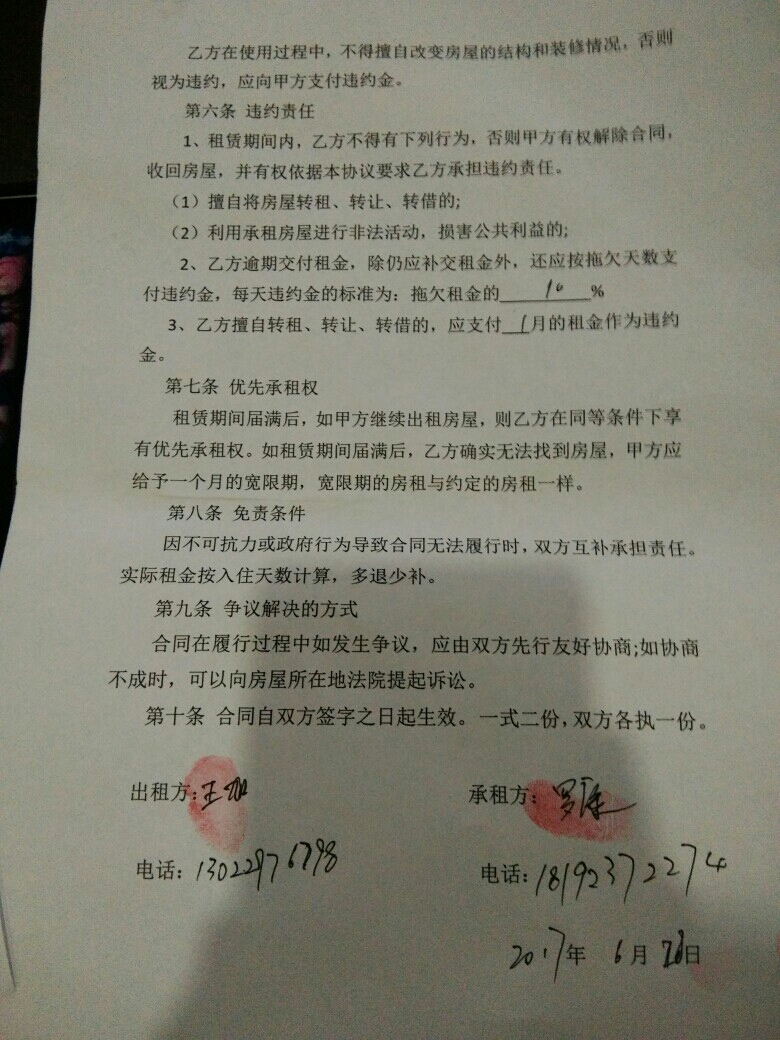 乙方在使用过程中，不得擅自改变房屋的结构和装修情况，否则
视为违约，应向甲方支付违约金。
第六条 违约责任
1、租赁期间内，乙方不得有下列行为，否则甲方有权解除合同，
收回房屋，并有权依据本协议要求乙方承担违约责任。
（1）擅自将房屋转租、转让、转借的;
（2）利用承租房屋进行非法活动，损害公共利益的;
2、乙方逾期交付租金，除仍应补交租金外，还应按拖欠天数支
付违约金，每天违约金的标准为：拖欠租金的 10 %
3、乙方擅自转租、转让、转借的，应支付 1 月的租金作为违约
金。
第七条 优先承租权
租赁期间届满后，如甲方继续出租房屋，则乙方在同等条件下享
有优先承租权。如租赁期间届满后，乙方确实无法找到房屋，甲方应
给予一个月的宽限期，宽限期的房租与约定的房租一样。
第八条 免责条件
因不可抗力或政府行为导致合同无法履行时，双方互补承担责任。
实际租金按入住天数计算，多退少补。
第九条 争议解决的方式
合同在履行过程中如发生争议，应由双方先行友好协商;如协商
不成时，可以向房屋所在地法院提起诉讼。
第十条 合同自双方签字之日起生效。一式二份，双方各执一份。
出租方：王 承租方：罗
电话：13022976798 电话：18192372274
2017年 6月 日